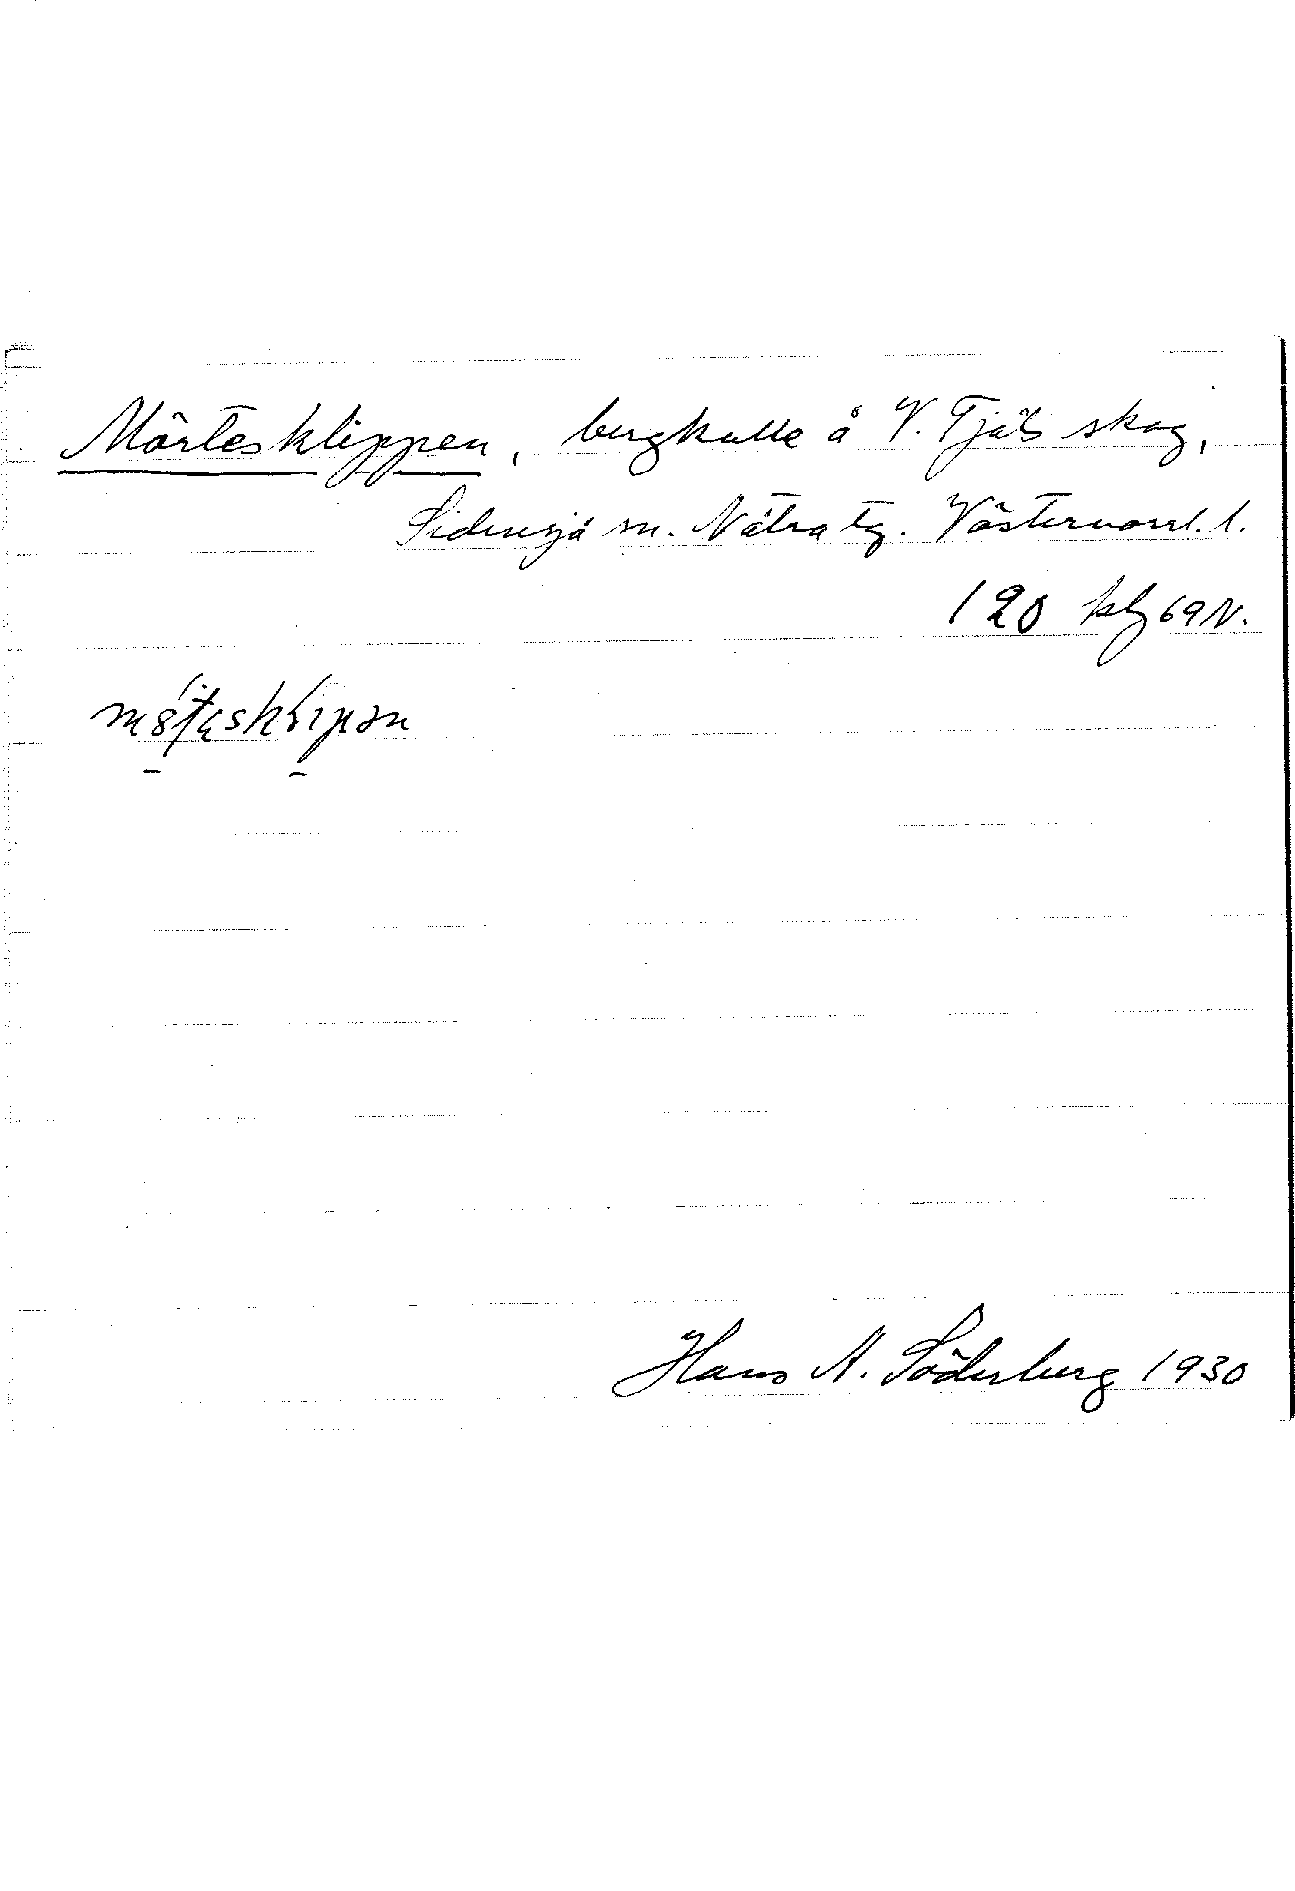 Mörtesklippen, bergkulle å V. Tjäls skog,
Sidensjö sn. Nätra tg. Västernorrl. l.
120 69 N.
Hans A. Söderberg 1930